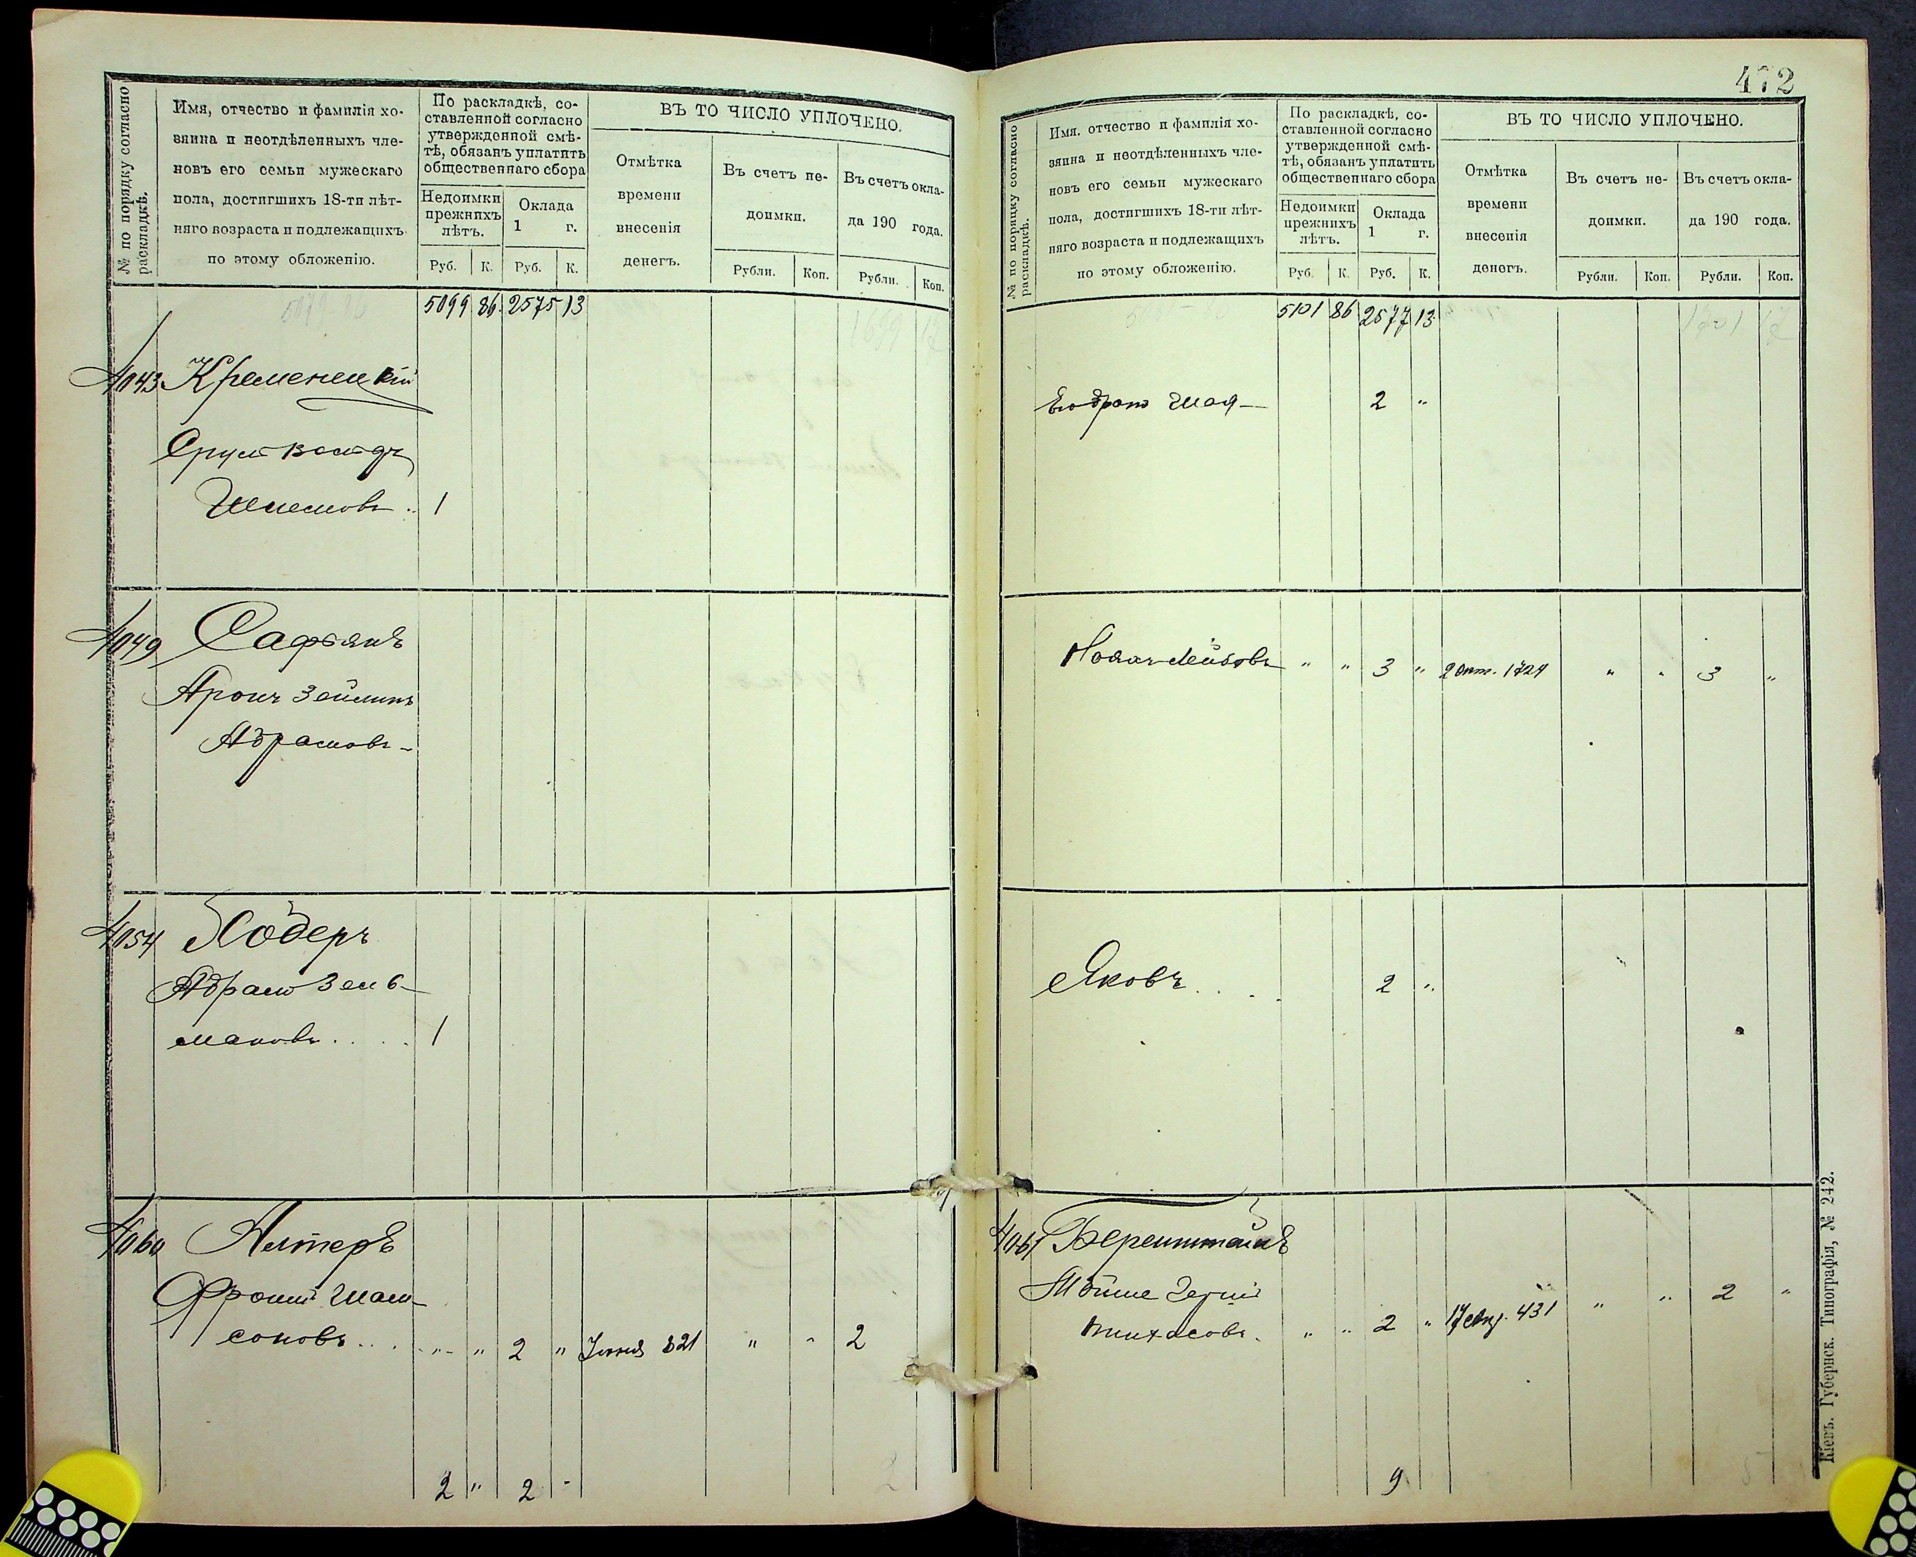 № по порядку согласно раскладкѣ.
Имя, отчество и фамилія хо-
зяина и неотдѣленныхъ чле-
новъ его семьи мужескаго
пола, достигшихъ 18-ти лѣт-
няго возраста и подлежащихъ
по этому обложенію.
По раскладкѣ, со-
ставленной согласно
утвержденной смѣ-
тѣ, обязанъ уплатить
общественнаго сбора
Недоимки
прежнихъ
лѣтъ.
Оклада
1 г.
Руб. К. Руб. К.
ВЪ ТО ЧИСЛО УПЛОЧЕНО.
Отмѣтка
времени
внесенія
денегъ.
Въ счетъ не-
доимки.
Рубли. Коп.
Въ счетъ окла-
да 190 года.
Рубли. Коп.
5099 86 2575 13
4043 Кременецкій
Срул
Шлемовъ 1
4049 Сафьянъ
Аронъ Зейлинъ
Абрамовъ
4054 Ходеръ
Абрамъ Зель-
мановъ 1
4060 Алтеръ
Фроимъ Шам-
соновъ " " 2 " 321 " " 2
2 " 2 -
472
№ по порядку согласно раскладкѣ.
Имя, отчество и фамилія хо-
зяина и неотдѣленныхъ чле-
новъ его семьи мужескаго
пола, достигшихъ 18-ти лѣт-
няго возраста и подлежащихъ
по этому обложенію.
По раскладкѣ, со-
ставленной согласно
утвержденной смѣ-
тѣ, обязанъ уплатить
общественнаго сбора
Недоимки
прежнихъ
лѣтъ.
Оклада
1 г.
Руб. К. Руб. К.
ВЪ ТО ЧИСЛО УПЛОЧЕНО.
Отмѣтка
времени
внесенія
денегъ.
Въ счетъ не-
доимки.
Рубли. Коп.
Въ счетъ окла-
да 190 года.
Рубли. Коп.
5101 86 2577 13
Шая 2 "
Лейбовъ " " 3 " 2 Окт. 1724 " " 3 "
Яковъ 2 "
4061 Беренштейнъ
Мойше Герш
Пинхасовъ " " 2 " 17 431 " " 2 "
9
Кіевъ. Губернск. Типографія, № 242.